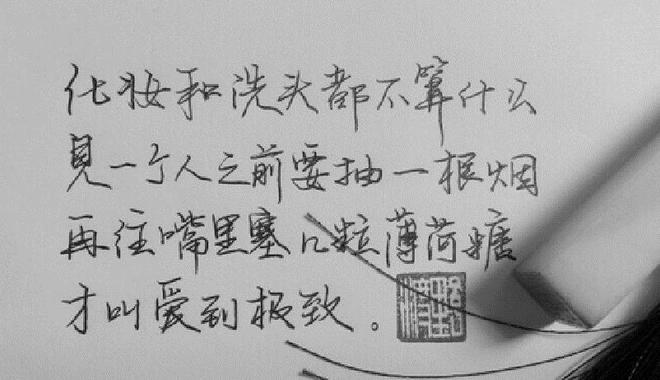 化妆和洗头都不算什么
見一个人之前要抽一根烟
再往嘴里塞几粒薄荷糖
才叫爱到极致。